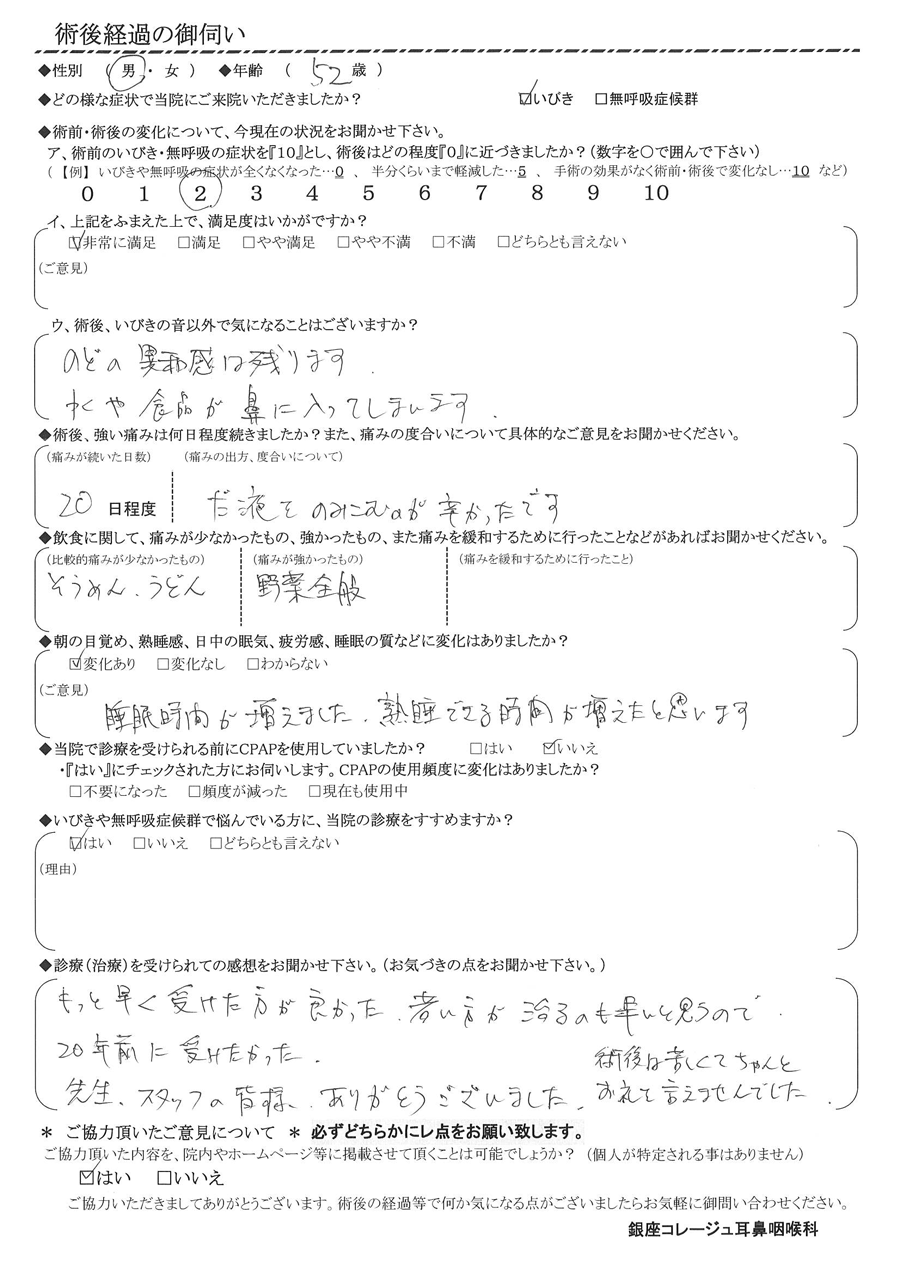 術後経過の御伺い
◆性別 ( 男 ・ 女 ) ◆年齢 ( 52 歳 )
◆どの様な症状で当院にご来院いただきましたか? ☑いびき □無呼吸症候群
◆術前・術後の変化について、今現在の状況をお聞かせ下さい。
ア、術前のいびき・無呼吸の症状を『10』とし、術後はどの程度『0』に近づきましたか?(数字を〇で囲んで下さい)
(【例】 いびきや無呼吸の症状が全くなくなった…0 、 半分くらいまで軽減した…5 、 手術の効果がなく術前・術後で変化なし…10 など)
0 1 2 3 4 5 6 7 8 9 10
イ、上記をふまえた上で、満足度はいかがですか?
☑非常に満足 □満足 □やや満足 □やや不満 □不満 □どちらとも言えない
(ご意見)
ウ、術後、いびきの音以外で気になることはございますか?
のどの異和感は残ります.
水や食品が鼻に入ってしまいます.
◆術後、強い痛みは何日程度続きましたか?また、痛みの度合いについて具体的なご意見をお聞かせください。
(痛みが続いた日数) (痛みの出方、度合いについて)
20 日程度 だ液をのみこむのが辛かったです
◆飲食に関して、痛みが少なかったもの、強かったもの、また痛みを緩和するために行ったことなどがあればお聞かせください。
(比較的痛みが少なかったもの) (痛みが強かったもの) (痛みを緩和するために行ったこと)
そうめん、うどん 野菜全般
◆朝の目覚め、熟睡感、日中の眠気、疲労感、睡眠の質などに変化はありましたか?
☑変化あり □変化なし □わからない
(ご意見)
睡眠時間が増えました、熟睡できる時間が増えたと思います
◆当院で診療を受けられる前にCPAPを使用していましたか? □はい ☑いいえ
・『はい』にチェックされた方にお伺いします。CPAPの使用頻度に変化はありましたか?
□不要になった □頻度が減った □現在も使用中
◆いびきや無呼吸症候群で悩んでいる方に、当院の診療をすすめますか?
☑はい □いいえ □どちらとも言えない
(理由)
◆診療(治療)を受けられての感想をお聞かせ下さい。(お気づきの点をお聞かせ下さい。)
もっと早く受けた方が良かった、若い方が治るのも早いと思うので
20年前に受けたかった.
先生、スタッフの皆様、ありがとうございました.
術後は苦しくてちゃんと
お礼も言えませんでした.
* ご協力頂いたご意見について * 必ずどちらかにレ点をお願い致します。
ご協力頂いた内容を、院内やホームページ等に掲載させて頂くことは可能でしょうか? (個人が特定される事はありません)
☑はい □いいえ
ご協力いただきましてありがとうございます。術後の経過等で何か気になる点がございましたらお気軽に御問い合わせください。
銀座コレージュ耳鼻咽喉科